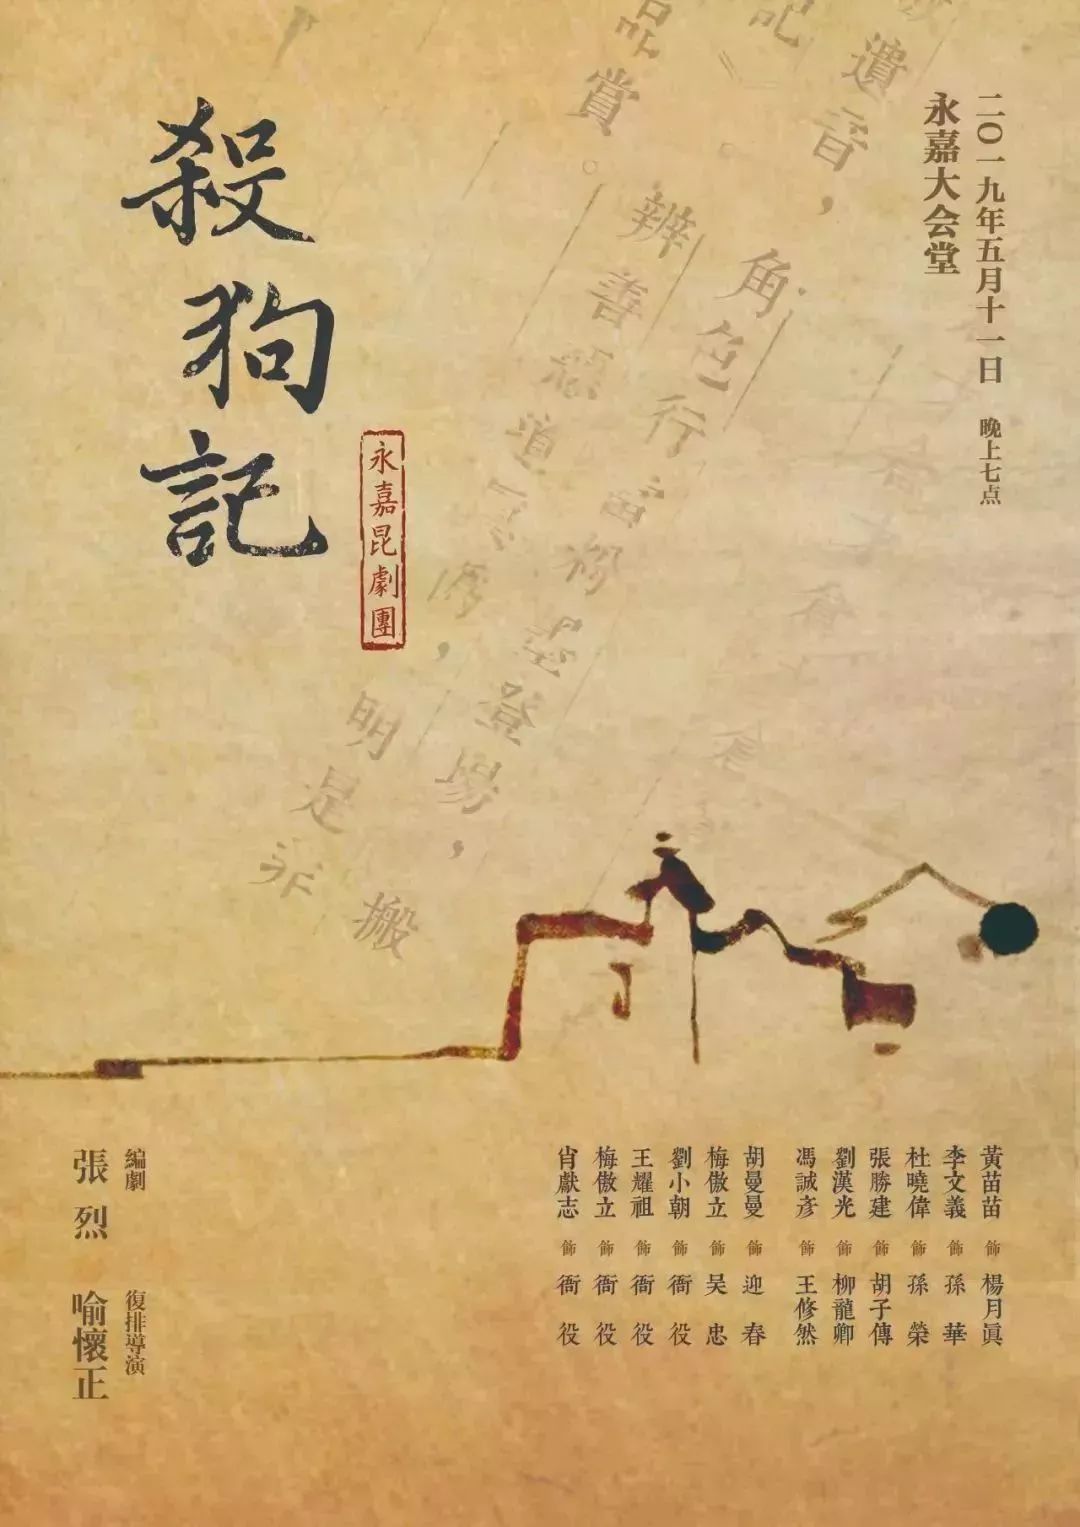 二〇一九年五月十一日 晚上七点
永嘉大会堂
殺狗記
永嘉昆劇團
遺音，
記
品賞。
角色行當粉墨登場，
辨善惡道
明是非
搬
黃苗苗 飾 楊月眞
李文義 飾 孫華
杜曉偉 飾 孫榮
張勝建 飾 胡子傳
劉漢光 飾 柳龍卿
馮誠彥 飾 王修然
胡曼曼 飾 迎春
梅傲立 飾 吴忠
劉小朝 飾 衙役
王耀祖 飾 衙役
梅傲立 飾 衙役
肖獻志 飾 衙役
編劇
張烈
復排導演
喻懷正